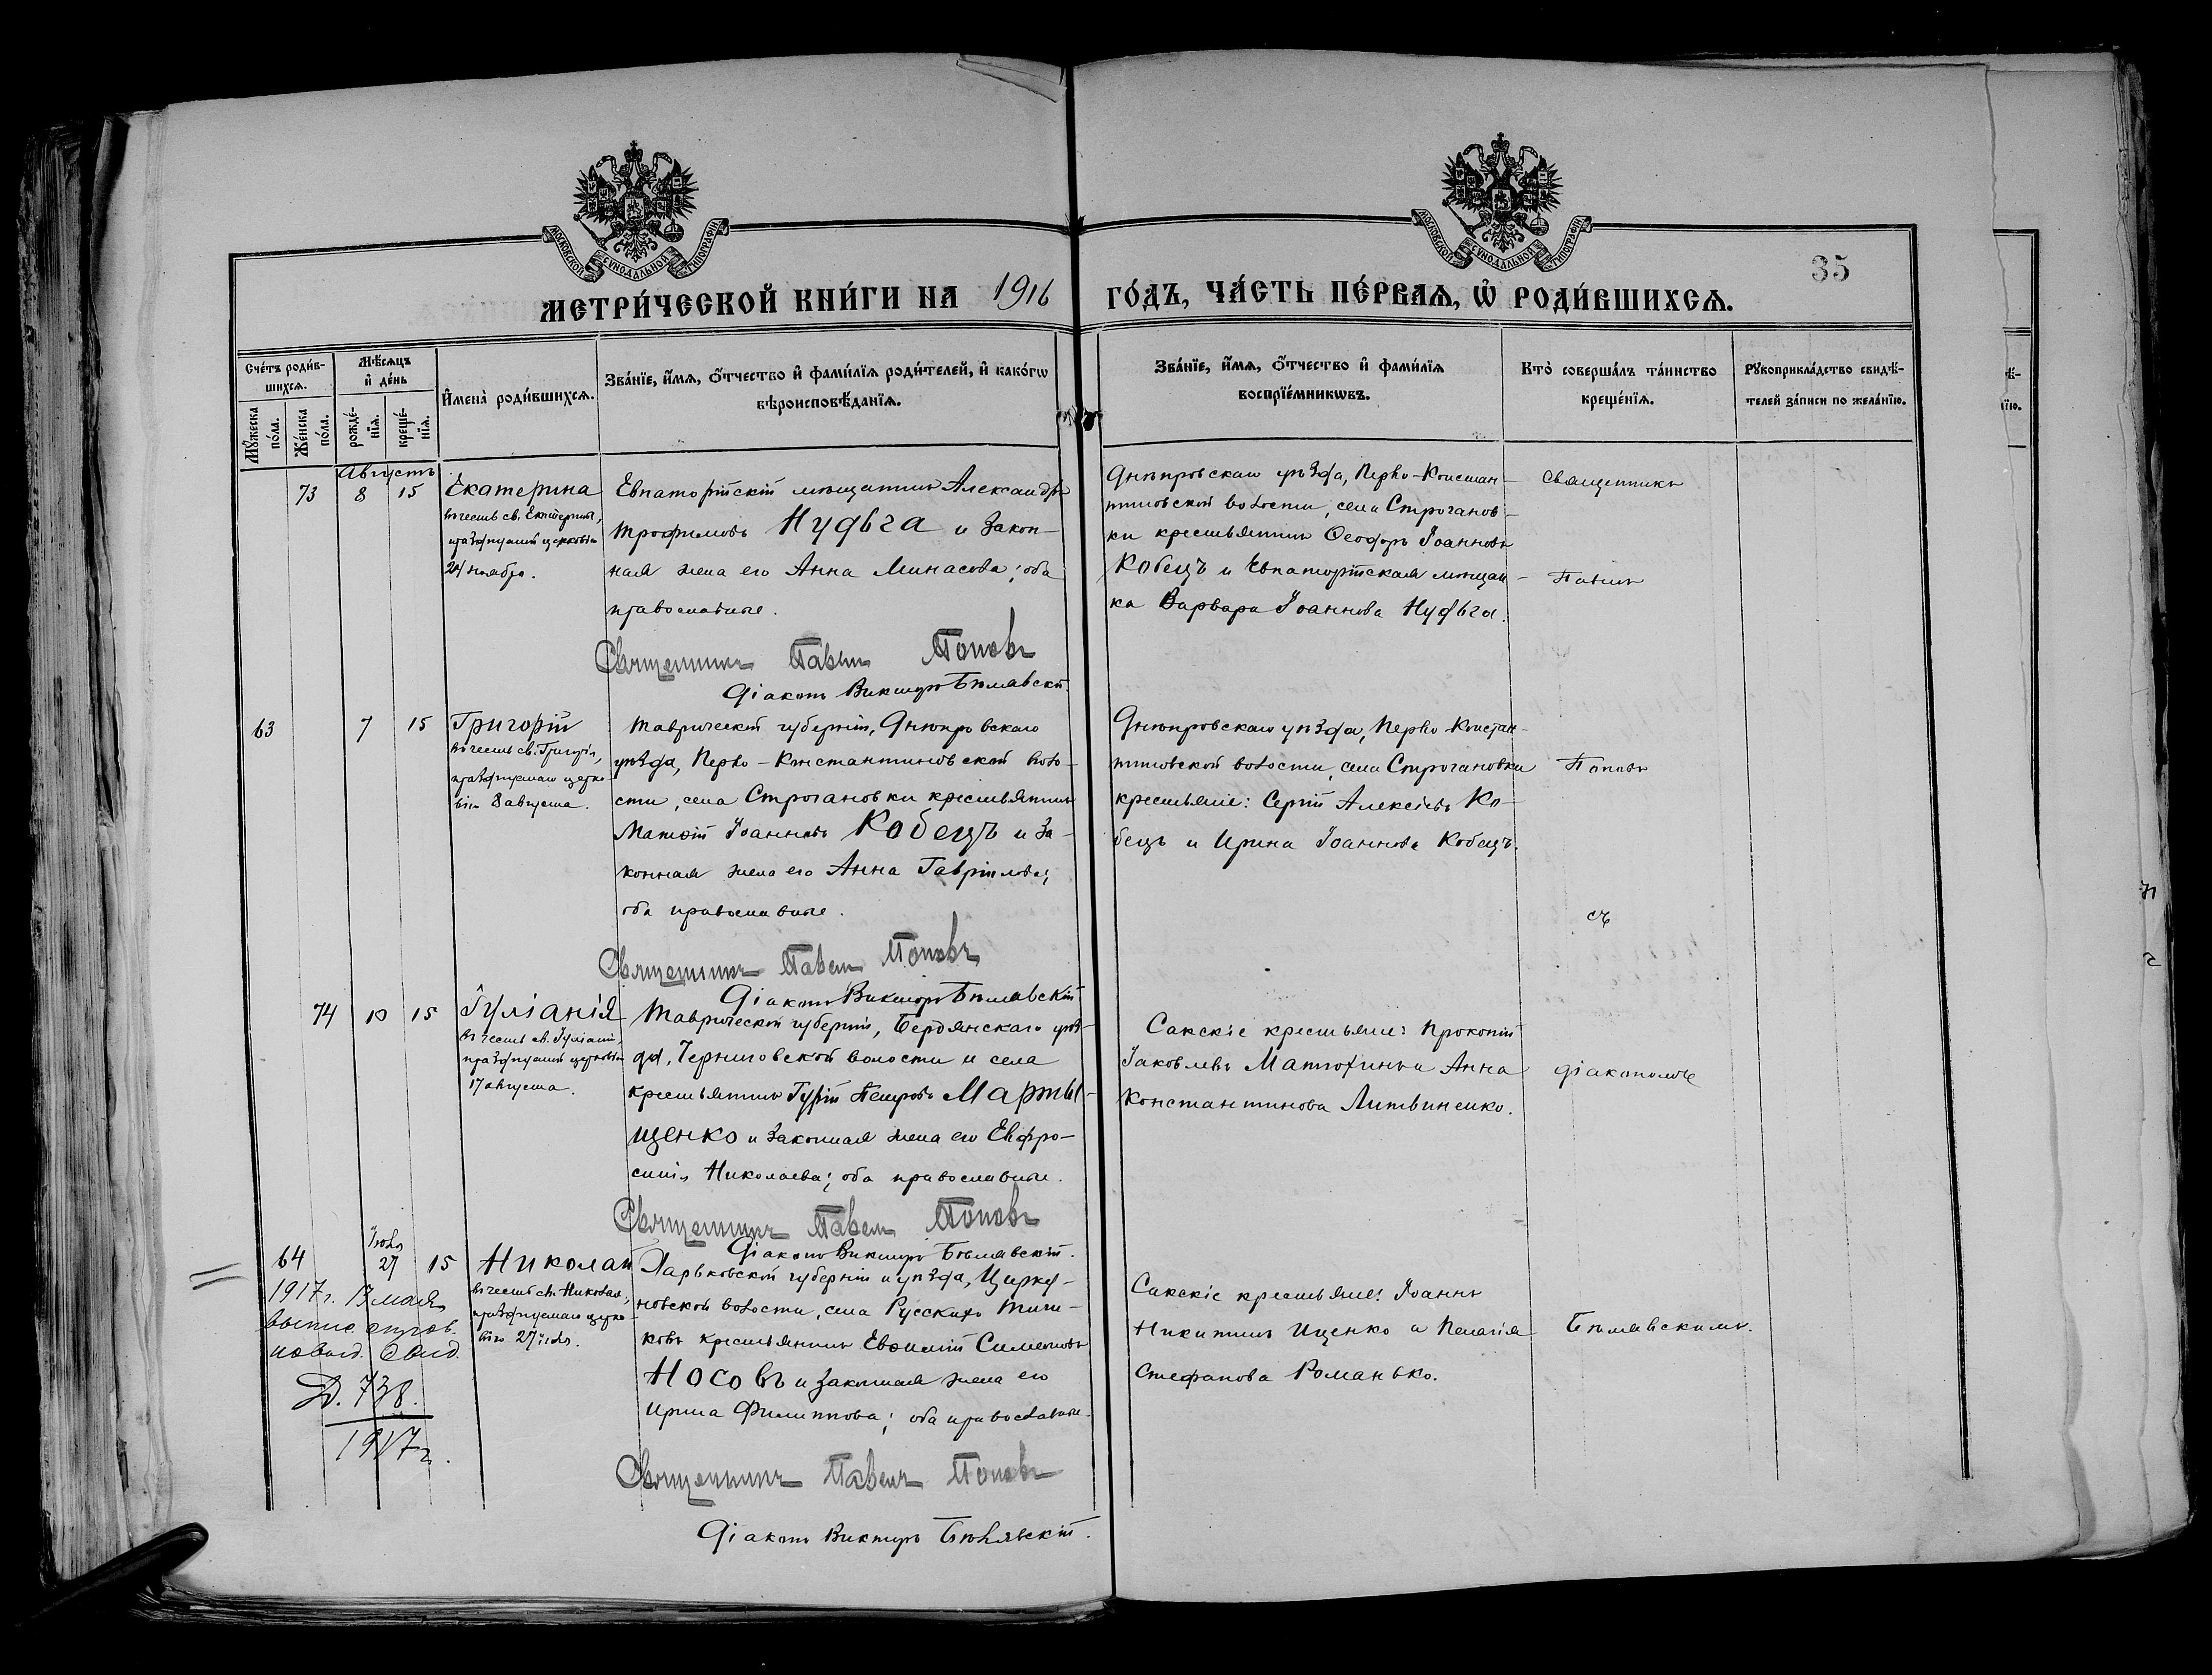 МОСКОВСКОЙ СѴНОДАЛЬНОЙ ТИПОГРАФІИ
МОСКОВСКОЙ СѴНОДАЛЬНОЙ ТИПОГРАФІИ
35
МЕТРИ́ЧЕСКОЙ КНИ́ГИ НА 1916 ГО́ДЪ, ЧА́СТЬ ПЕ́РВАѦ, Ѡ҆ РОДИ́ВШИХСѦ.
Сче́тъ роди́в-
шихсѧ.
Мꙋ́жеска по́ла.
Же́нска по́ла.
Мѣ́сѧцъ
и҆ де́нь
рожде́-нїѧ.
креще́-нїѧ.
И҆мена̀ роди́вшихсѧ.
Зва́нїе, и҆́мѧ, ѻ҆́тчество и҆ фами́лїѧ роди́телей, и҆ како́гѡ
вѣроисповѣ́данїѧ.
Зва́нїе, и҆́мѧ, ѻ҆́тчество и҆ фами́лїѧ
воспрїе́мникѡвъ.
Кто̀ соверша́лъ та́инство
креще́нїѧ.
Рꙋкоприкла́дство свидѣ́-
телей за́писи по жела́нїю.
Августъ
73 8 15 Екатерина
въ честь св. Екатерины,
празднуемой церковію
24 ноября.
Евпаторійскій мѣщанинъ Александръ
Трофимовъ Нудьга и закон-
ная жена его Анна Минасова; оба
православные.
Священникъ Павелъ Поповъ
Діаконъ Викторъ Бѣлявскій.
Днѣпровскаго уѣзда, Перво-Констан-
тиновской волости, села Строганов-
ки крестьянинъ Ѳеодоръ Іоанновъ
Кобецъ и Евпаторійская мѣщан-
ка Варвара Іоаннова Нудьга.
Священникъ
Павелъ
63 7 15 Григорій
въ честь св. Григорія,
празднуемаго церко-
вію 8 августа.
Таврической губерніи, Днѣпровскаго
уѣзда, Перво-Константиновской воло-
сти, села Строгановки крестьянинъ
Матѳій Іоанновъ Кобецъ и за-
конная жена его Анна Гавріилова;
оба православные.
Священникъ Павелъ Поповъ
Діаконъ Викторъ Бѣлявскій
Днѣпровскаго уѣзда, Перво-Констан-
тиновской волости, села Строгановки
крестьяне: Сергій Алексіевъ Ко-
бецъ и Ирина Іоаннова Кобецъ.
Поповъ
съ
74 10 15 Іуліанія
въ честь св. Іуліаніи,
празднуемой церковію
17 августа.
Таврической губерніи, Бердянскаго уѣз-
да, Черниговской волости и села
крестьянинъ Гурій Петровъ Марты-
щенко и законная жена его Евфро-
синія Николаева; оба православные.
Священникъ Павелъ Поповъ
Діаконъ Викторъ Бѣлявскій.
Сакскіе крестьяне: Прокопій
Іаковлевъ Матюхинъ и Анна
Константинова Литвиненко.
діакономъ
Іюль
64 27 15 Николай
въ честь св. Николая,
празднуемаго церко-
вію 27 іюля.
1917 г. 13 мая
Д. 738.
1917 г.
Харьковской губерніи и уѣзда, Цирку-
новской волости, села Русскихъ Тиш-
ковъ крестьянинъ Евѳимій Симеоновъ
Носовъ и законная жена его
Ирина Филиппова; оба православные.
Священникъ Павелъ Поповъ
Діаконъ Викторъ Бѣлявскій.
Сакскіе крестьяне: Іоаннъ
Никитинъ Ищенко и Пелагія
Стефанова Романько.
Бѣлявскимъ.